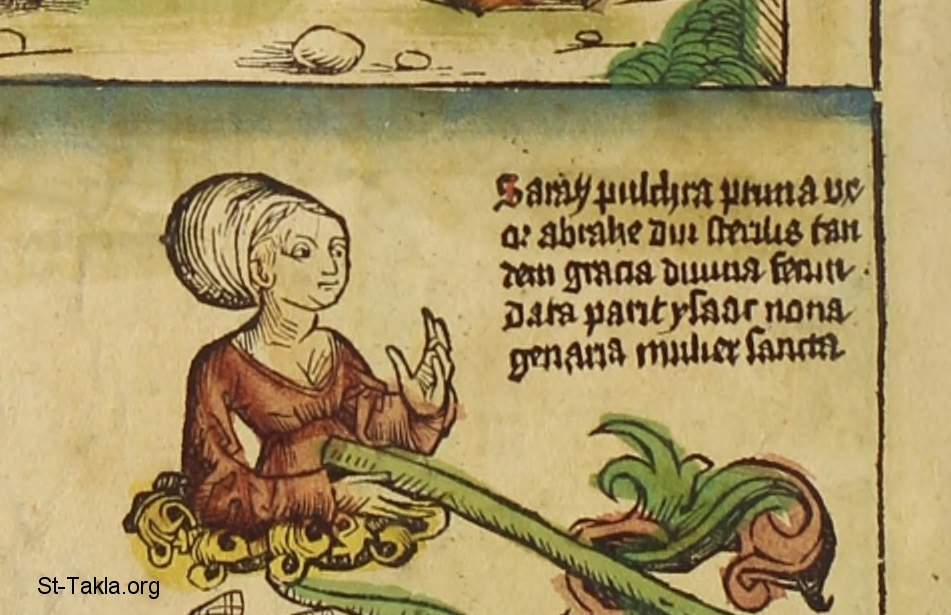 Saray pulchra prima ux
or abrahe diu sterilis tan
dem gracia diuina fecun
data parit ysaac nona
genaria mulier sancta
St-Takla.org